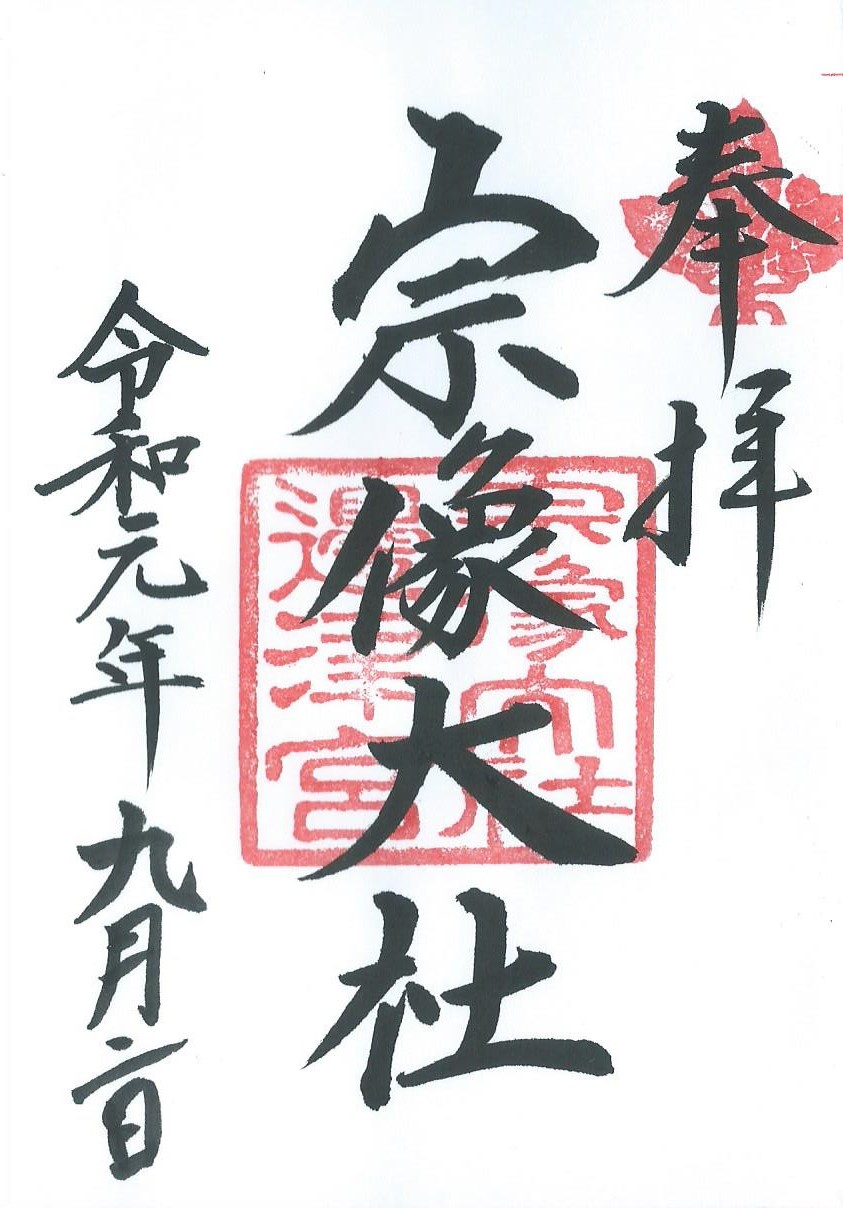 奉拝
宗像大社
宗像大社
邊津宮
令和元年九月二日